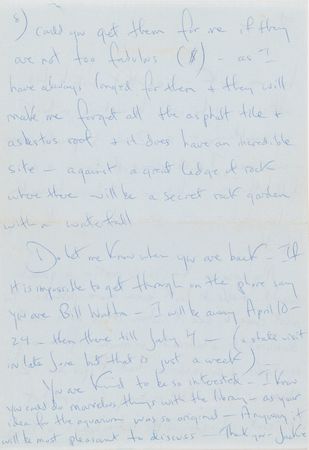 8) could you get them for me if they
are not too fabulous ($) - as I
have always longed for them & they will
make me forget all the asphalt tile &
asbestos roof & it does have an incredible
site - against a great ledge of rock
where there will be a secret rock garden
with a waterfall
Do let me know when you are back - If
it is impossible to get through on the phone say
you are Bill Walton - I will be away April 10-
24 - then there till July 4 - (a state visit
in late June but that is just a week)
You are kind to be so interested - I know
you could do marvelous things with the library - as your
idea for the aquarium was so original - Anyway, it
will be most pleasant to discuss - Thank you - Jackie